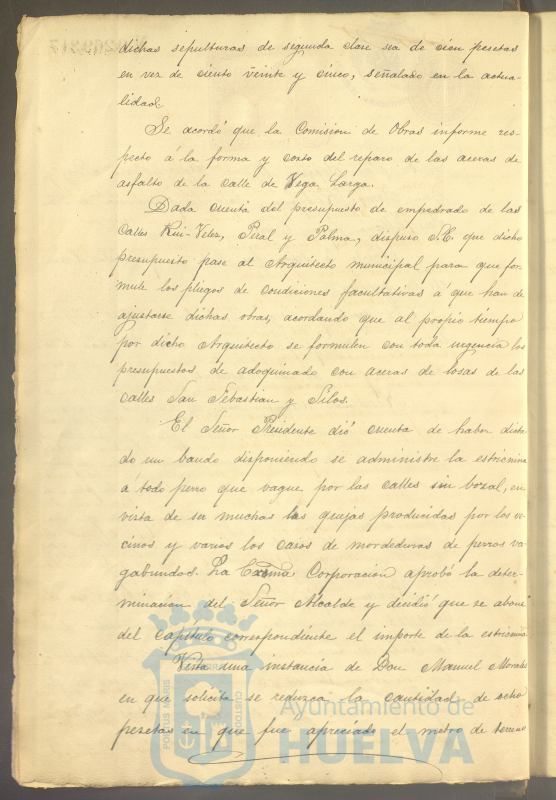 dichas sepulturas de segunda clase sea de cien pesetas
en vez de ciento veinte y cinco, señalado en la actua-
lidad.
Se acordó que la Comision de Obras informe res-
pecto á la forma y costo del reparo de las aceras de
asfalto de la calle de Vega Larga.
Dada cuenta del presupuesto de empedrado de las
Calles Rui-Velez, Peral y Palma, dispuso S.E. que dicho
presupuesto pase al Arquitecto municipal para que for-
mule los pliegos de condiciones facultativas á que han de
ajustarse dichas obras, acordando que al propio tiempo
por dicho Arquitecto se formulen con toda urgencia los
presupuestos de adoquinado con aceras de losas de las
calles San Sebastian y Silos.
El Señor Presidente dió cuenta de haber dicta-
do un bando disponiendo se administre la estricnina
á todo perro que vague por las calles sin bozal, en
vista de ser muchas las quejas producidas por los ve-
cinos y varios los casos de mordeduras de perros va-
gabundos. La Exma Corporacion aprobó la deter-
minacion del Señor Alcalde y decidió que se abone
del Capitulo correspondiente el importe de la estricnina.
Vista una instancia de Don Manuel Morales
en que solicita se reduzca la cantidad de ocho
pesetas en que fue apreciado el metro de terreno
Ayuntamiento de
HUELVA
PORTUS MARIS
TERRAE
CUSTODIA